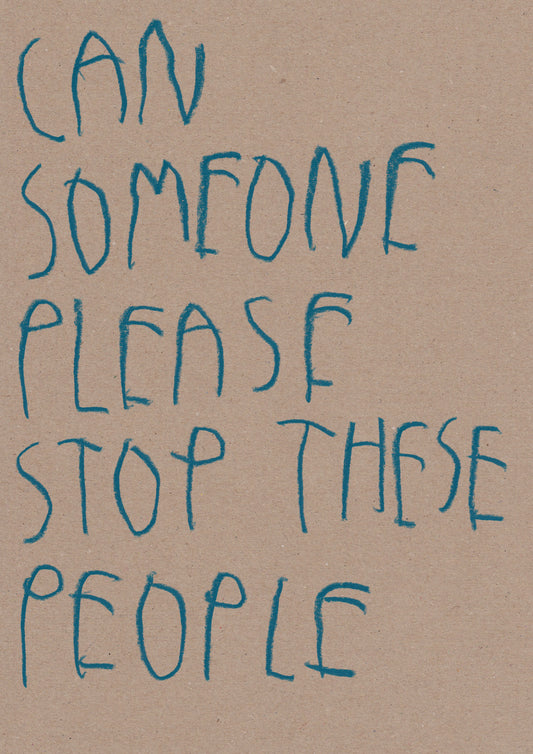 CAN
SOMEONE
PLEASE
STOP THESE
PEOPLE